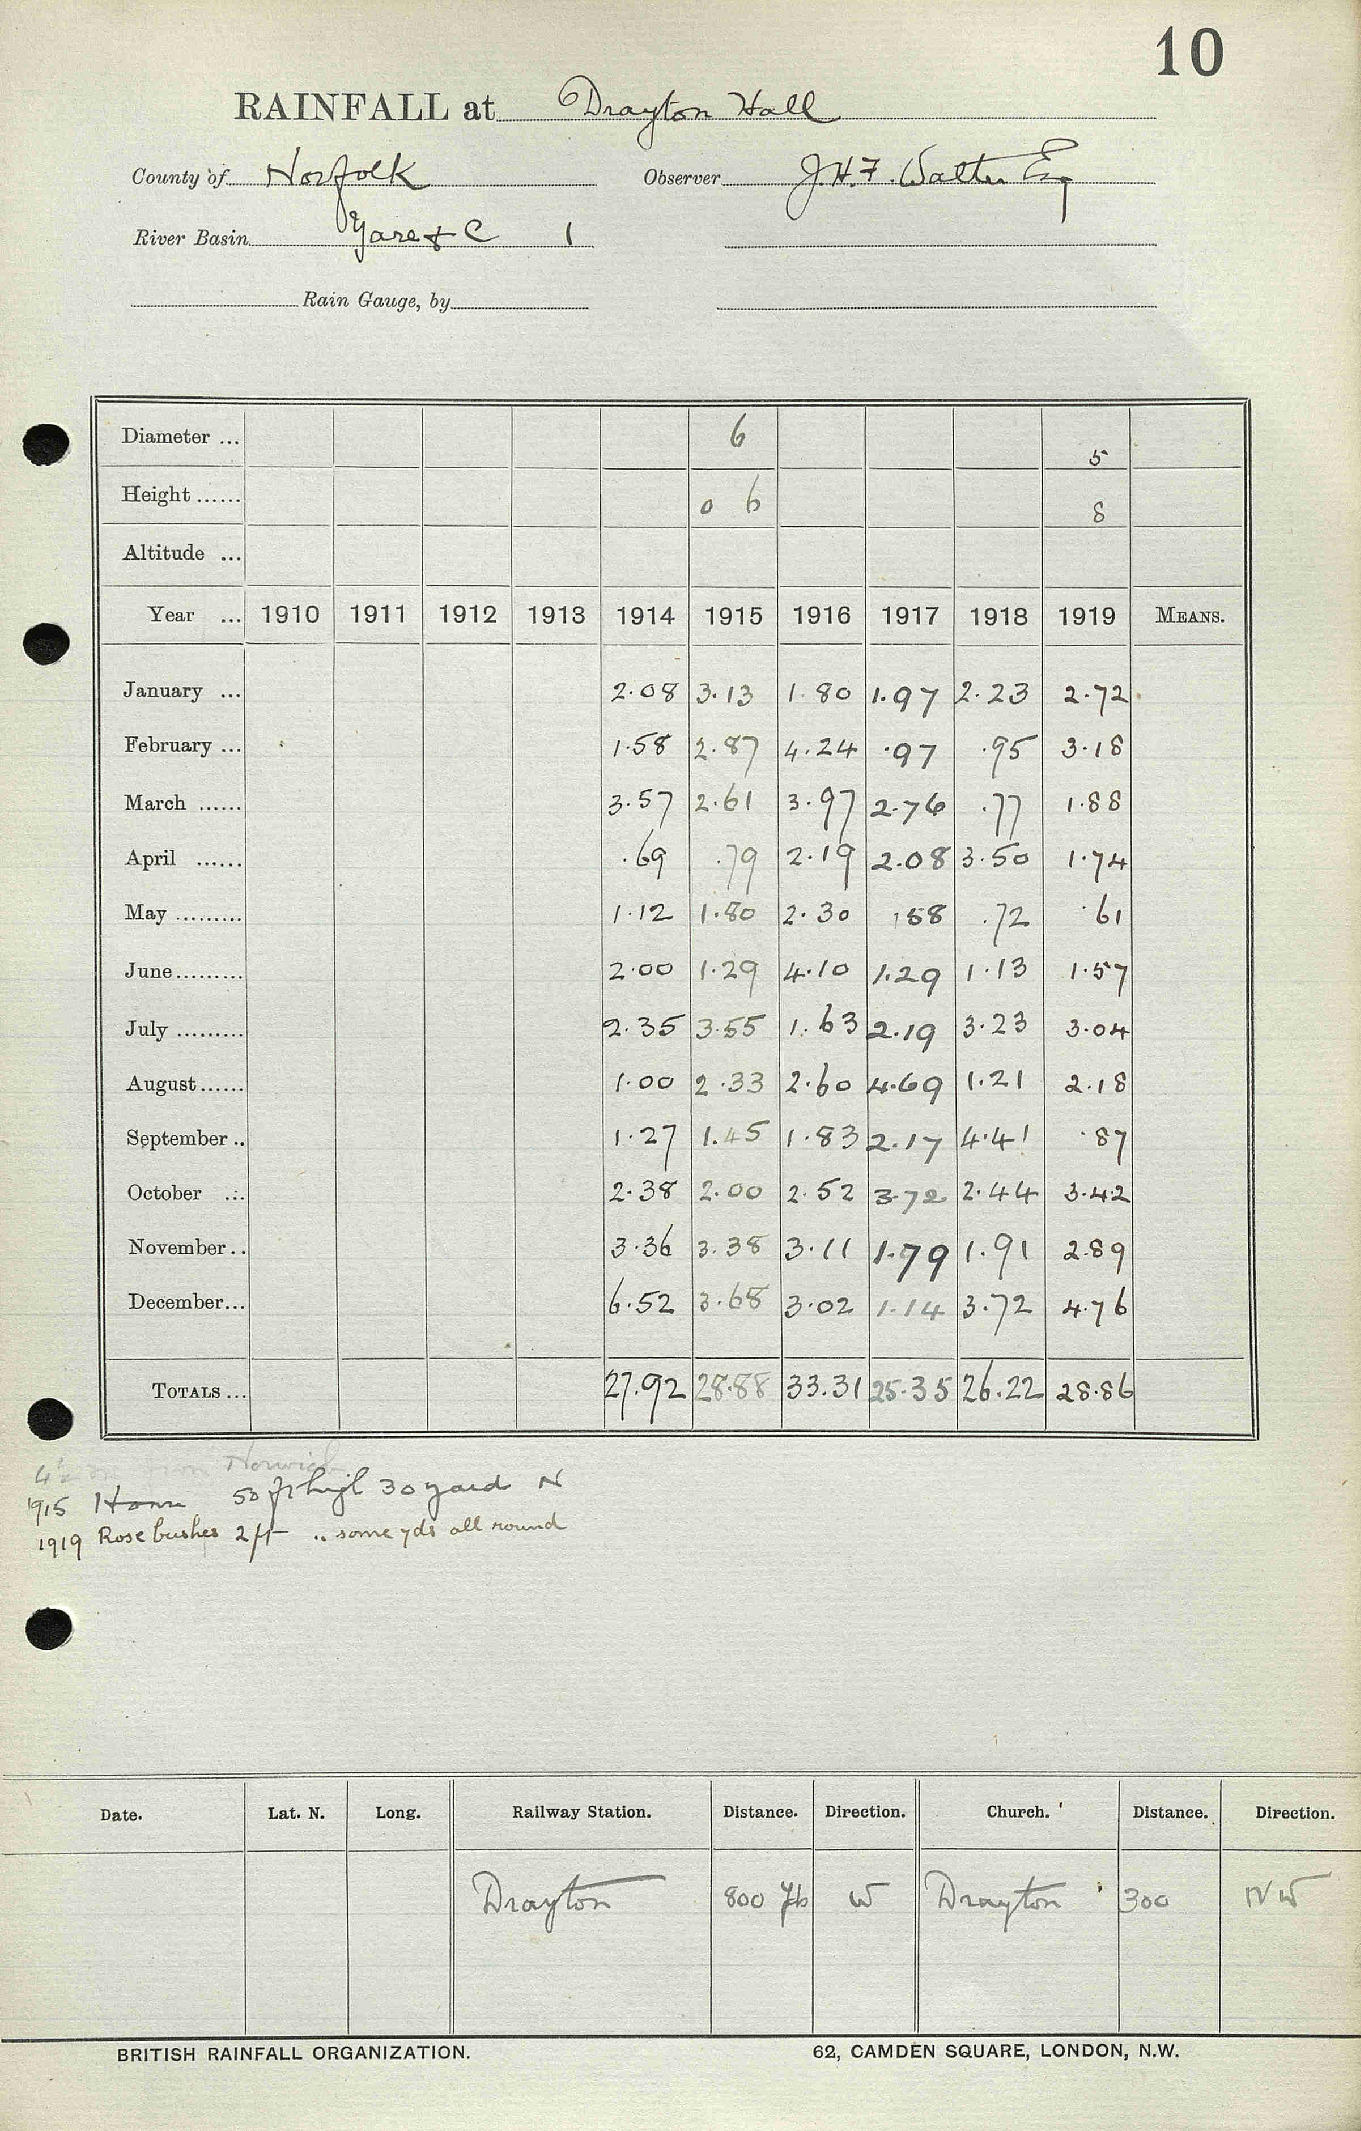 10
RAINFALL at Drayton Hall
County of Norfolk Observer J.H.F. Walter Esq
River Basin Yare & C 1
Rain Gauge, by
Diameter ... 6 5
Height ...... 0 6 8
Altitude ...
Year ... 1910 1911 1912 1913 1914 1915 1916 1917 1918 1919 MEANS.
January ... 2.08 3.13 1.80 1.97 2.23 2.72
February ... 1.58 2.87 4.24 .97 .95 3.18
March ...... 3.57 2.61 3.97 2.76 .77 1.88
April ...... .69 .79 2.19 2.08 3.50 1.74
May ......... 1.12 1.80 2.30 .58 .72 .61
June ......... 2.00 1.29 4.10 1.29 1.13 1.57
July ......... 2.35 3.55 1.63 2.19 3.23 3.04
August ...... 1.00 2.33 2.60 4.69 1.21 2.18
September .. 1.27 1.45 1.83 2.17 4.41 .87
October ... 2.38 2.00 2.52 3.72 2.44 3.42
November .. 3.36 3.38 3.11 1.79 1.91 2.89
December ... 6.52 3.68 3.02 1.14 3.72 4.76
TOTALS ... 27.92 28.88 33.31 25.35 26.22 28.86
from Norwich
1915 House 50 ft high 30 yard N
1919 Rose bushes 2 ft .. some yds all round
Date. Lat. N. Long. Railway Station. Distance. Direction. Church. Distance. Direction.
Drayton 800 yds W Drayton 300 NW
BRITISH RAINFALL ORGANIZATION. 62, CAMDEN SQUARE, LONDON, N.W.